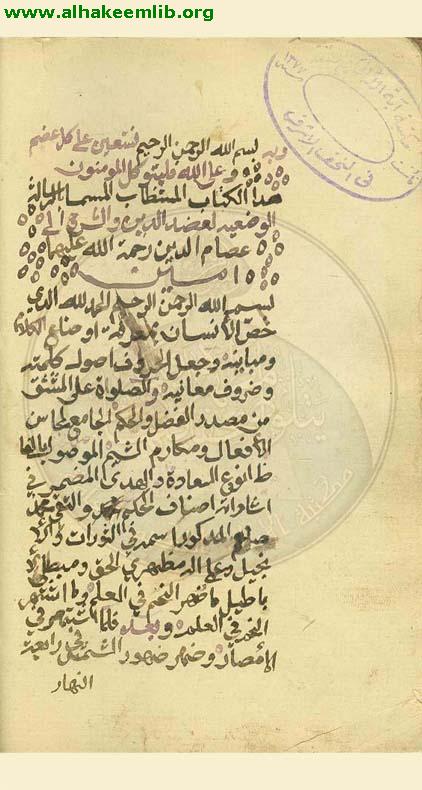 www.alhakeemlib.org
وبه بسم الله الرحمن الرحيم نستعين على كل عضيم
وعلى الله فليتوكل المومنون
هدا الكتاب المستطاب المسما الرسالة
الوضعيه لعضد الدين والشرح الى
عصام الدين رحمة الله عليهما
امين
بسم الله الرحمن الرحيم الحمد لله الدي
خص الأنسان بمعرفة اوضاع الكلام
ومبانيه وجعل الحروف اصول كلمته
وضروف معانيه والصلواة على المشتق
من مصدر الفضل والحكم الجامع لمحاسن
الأفعال ومكارم الشيم الموضوع بالفا
ظ انوع السعادة والهدى المضمر في
اشاراته اصناف الحكم محمد والنبي محمد
المدكور اسمه في التورات والأ
نجيل وعلى اله مظهري الحق ومبطلي الأ
باطيل ما ضهر النجم في العلم ولما اشتهر
النجم في العلم وبعد فلما اشتهر في
الأمصار وضهر ضهور الشمس في رابعة
النهار
في النجف الاشرف